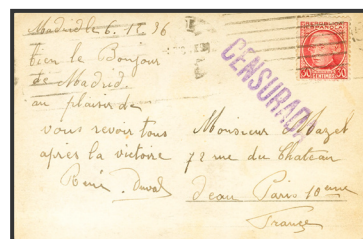 Madrid le 6. 12. 36
bien le Bonjour
de Madrid.
au plaisir de
vous revoir tous
après la victoire
René Duval
CENSURADA
REPUBLICA
ESPAÑOLA
30 30
CENTIMOS
Monsieur Mazet
72 rue du Chateau
d'eau Paris 10eme
France